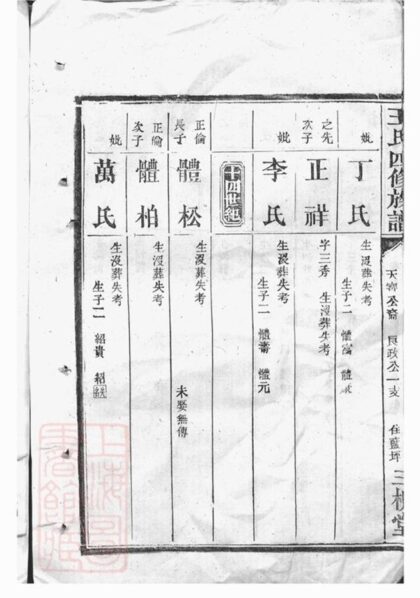 王氏四修族譜
天榜公裔
良政公一支
住藍坪
三槐堂
妣
丁氏
生沒葬失考
生子二
之先
次子
正祥
字三秀
生沒葬失考
妣
李氏
生沒葬失考
生子二
體元
四世紀
正倫
長子
體松
生沒葬失考
未娶無傳
正倫
次子
體柏
生沒葬失考
妣
萬氏
生沒葬失考
生子二
紹貴
紹
上海圖書館